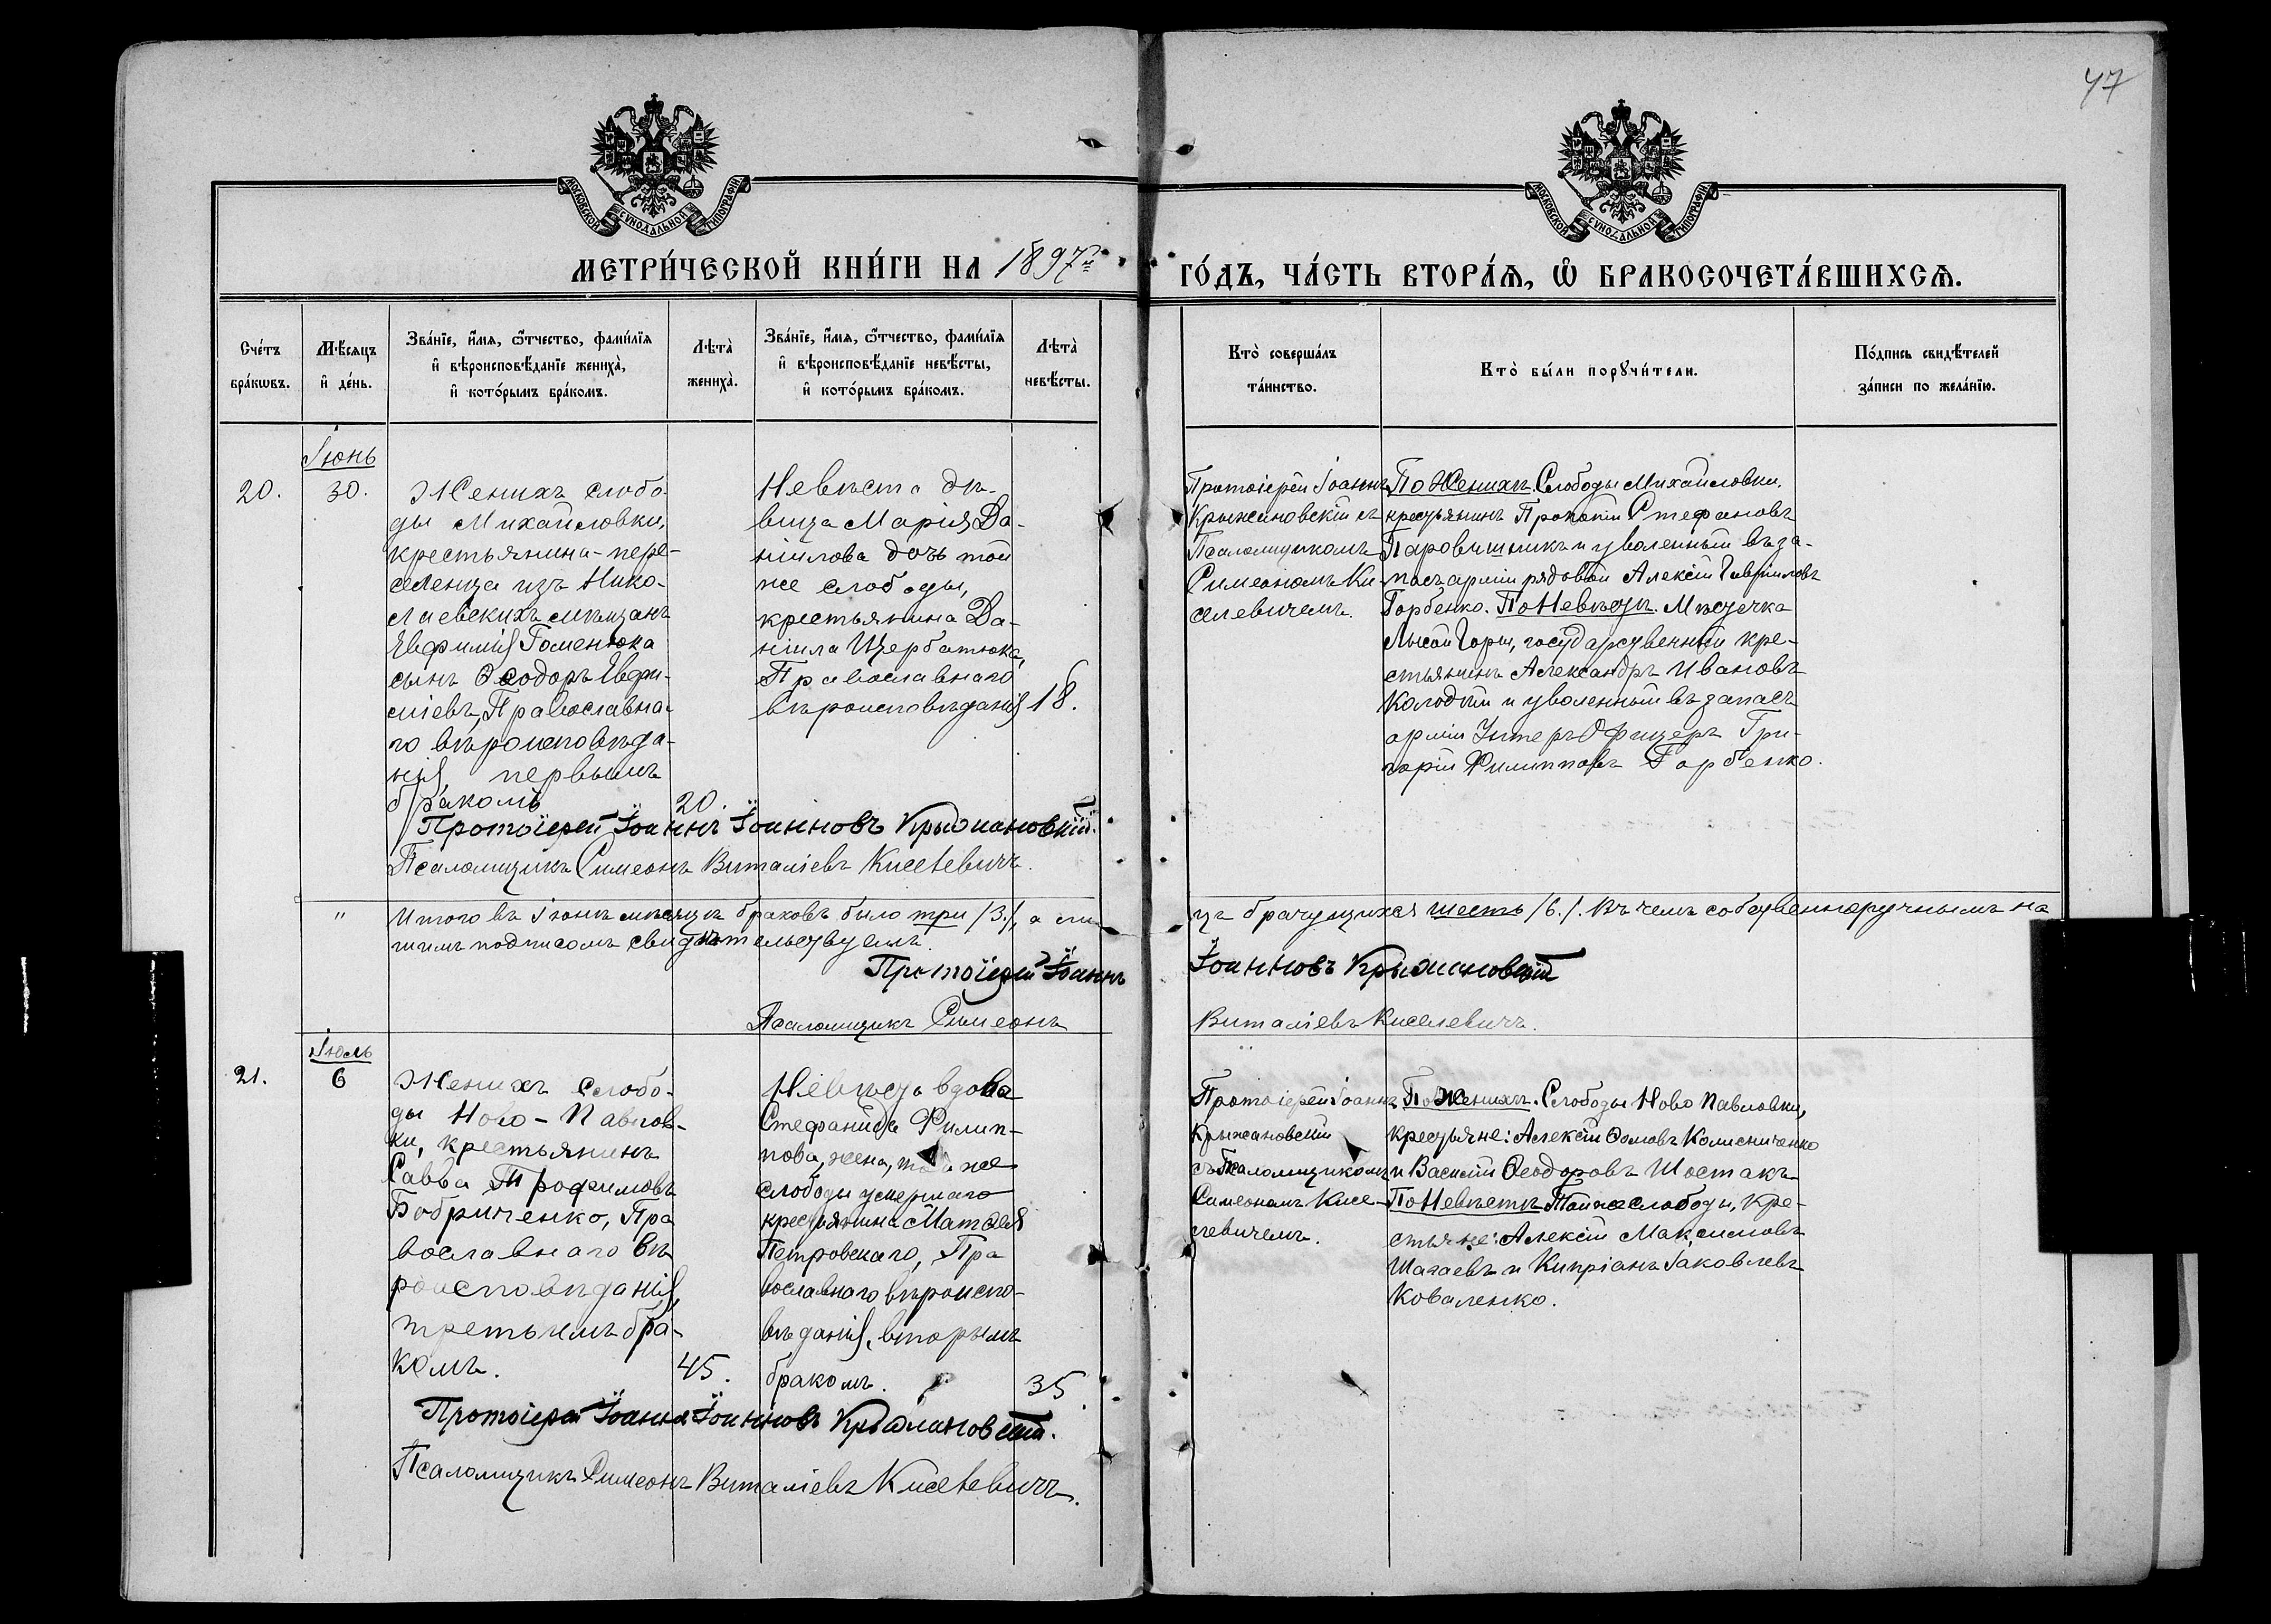 47
МОСКОВСКОЙ СѴНОДАЛЬНОЙ ТИПОГРАФІИ
МОСКОВСКОЙ СѴНОДАЛЬНОЙ ТИПОГРАФІИ
МЕТРИ́ЧЕСКОЙ КНИ́ГИ НА 1897й
ГО́ДЪ, ЧА́СТЬ ВТОРА́Ѧ, Ѡ҆ БРАКОСОЧЕТА́ВШИХСѦ.
Сче́тъ
бра́кѡвъ.
Мѣ́сяцъ
и҆ де́нь.
Зва́нїе, и҆́мя, ѻ҆́тчество, фами́лїя
и҆ вѣроисповѣ́данїе жениха̀,
и҆ кото́рымъ бра́комъ.
Лѣта̀
жениха̀.
Зва́нїе, и҆́мя, ѻ҆́тчество, фами́лїя
и҆ вѣроисповѣ́данїе невѣ́сты,
и҆ кото́рымъ бра́комъ.
Лѣта̀
невѣ́сты.
Кто̀ соверша́лъ
та́инство.
Кто̀ бы́ли порꙋчи́тели.
По́дпись свидѣ́телей
за́писи по жела́нїю.
Іюнь
20.
30.
Женихъ слобо-
ды Михайловки,
крестьянина-пере-
селенца изъ Нико-
лаевскихъ мѣщанъ
Евфимія Гоменюка
сынъ Ѳеодоръ Евфи-
міевъ, Православна-
го вѣроисповѣда-
нія первымъ
бракомъ
20.
Невѣста дѣ-
вица Марія Да-
ніилова дочь той
же слободы,
крестьянина Да-
ніила Щербатюка,
Православнаго
вѣроисповѣданія
18.
Протоіерей Іоаннъ
Крыжановскій съ
Псаломщикомъ
Симеономъ Ки-
селевичемъ.
По Женихѣ. Слободы Михайловки,
крестьянинъ Прокопій Стефановъ
Паровишникъ и уволенный въ за-
пасъ арміи рядовой Алексій Гавріиловъ
Горбенко. По Невѣстѣ. Мѣстечка
Лысой Горы, государственный кре-
стьянинъ Александръ Ивановъ
Колодій и уволенный въ запасъ
арміи Унтеръ Офицеръ Гри-
горій Филипповъ Горбенко.
Протоїерей Їоаннъ Їоанновъ Крыжановскїй.
Псаломщикъ Симеонъ Виталіевъ Киселевичъ.
"
Итого въ Іюнѣ мѣсяцѣ браковъ было три /3./, а ли-
цъ брачущихся шесть /6./. Въ чемъ собственноручнымъ на
шимъ подписомъ свидѣтельствуемъ.
Протоїерей Їоаннъ
Їоанновъ Крыжановскїй
Псаломщикъ Симеонъ
Виталіевъ Киселевичъ.
Іюль
21.
6
Женихъ слобо-
ды Ново-Павлов-
ки, крестьянинъ
Савва Трофимовъ
Бобриченко, Пра
вославнаго вѣ
роисповѣданія,
третьимъ бра-
комъ.
45.
Невѣста вдова
Стефанида Филип-
пова, жена, той же
слободы умершаго
крестьянина Матѳея
Петровскаго, Пра
вославнаго вѣроиспо-
вѣданія, вторымъ
бракомъ.
35
Протоіерей Іоаннъ
Крыжановскій
съ Псаломщикомъ
Симеономъ Кисе-
левичемъ.
По Женихѣ. Слободы Ново Павловки,
крестьяне: Алексій Ѳомовъ Колисниченко
и Василій Ѳеодоровъ Шостакъ
По Невѣстѣ Той же слободы, кре-
стьяне: Алексій Максимовъ
Шагаевъ и Кипріанъ Іаковлевъ
Коваленко.
Протоіерей Їоаннъ Їоанновъ Крыжановскїй.
Псаломщикъ Симеонъ Виталіевъ Киселевичъ.